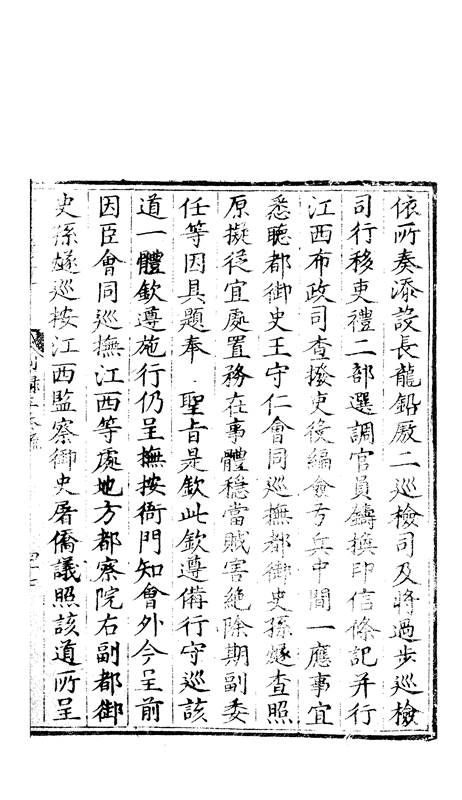 依所奏添設長龍鉛厰二巡檢司及將過步巡檢
司行移吏禮二部選調官員鑄換印信條記并行
江西布政司查撥吏後編僉弓兵中間一應事宜
悉聽都御史王守仁會同巡撫都御史孫燧查照
原擬從宜處置務在事體穩當賊害絶除期副委
任等因具題奉　聖旨是欽此欽遵備行守巡該
道一體欽遵施行仍呈撫按衙門知會外今呈前
因臣會同巡撫江西等處地方都察院右副都御
史孫燧巡按江西監察御史屠僑議照該道所呈